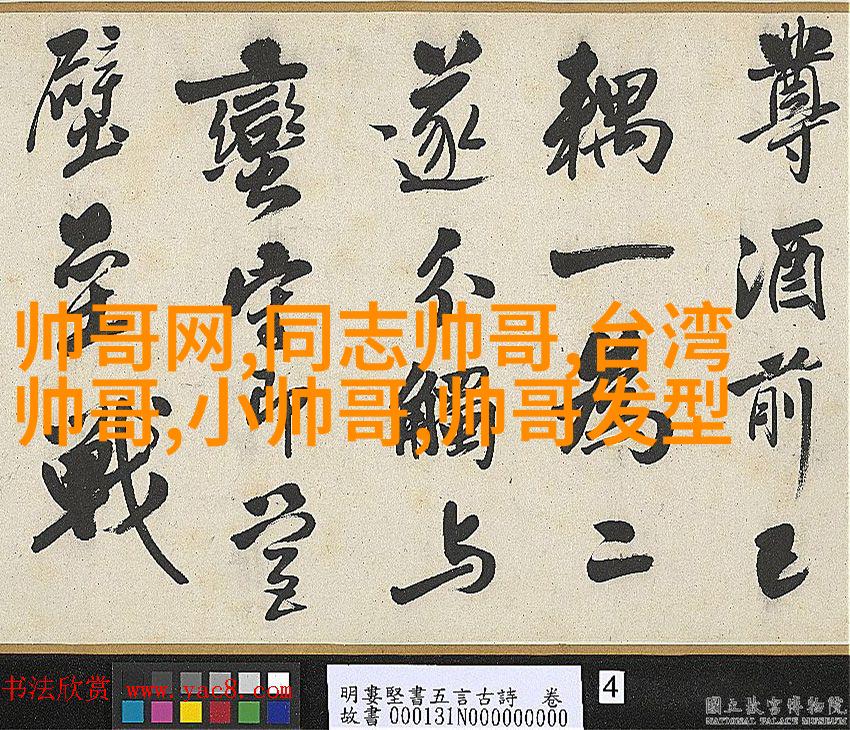 尊酒前已
耦一為二
遂分觸与
蠻即
壁戰
帅哥网,同志帅哥,台湾
帅哥,小帅哥,帅哥发型
书法欣赏 www.yac8.com
明婁堅書五言古詩 卷
故書000131N000000000
4
國立故宮博物院
NATIONAL PALACE MUSEUM